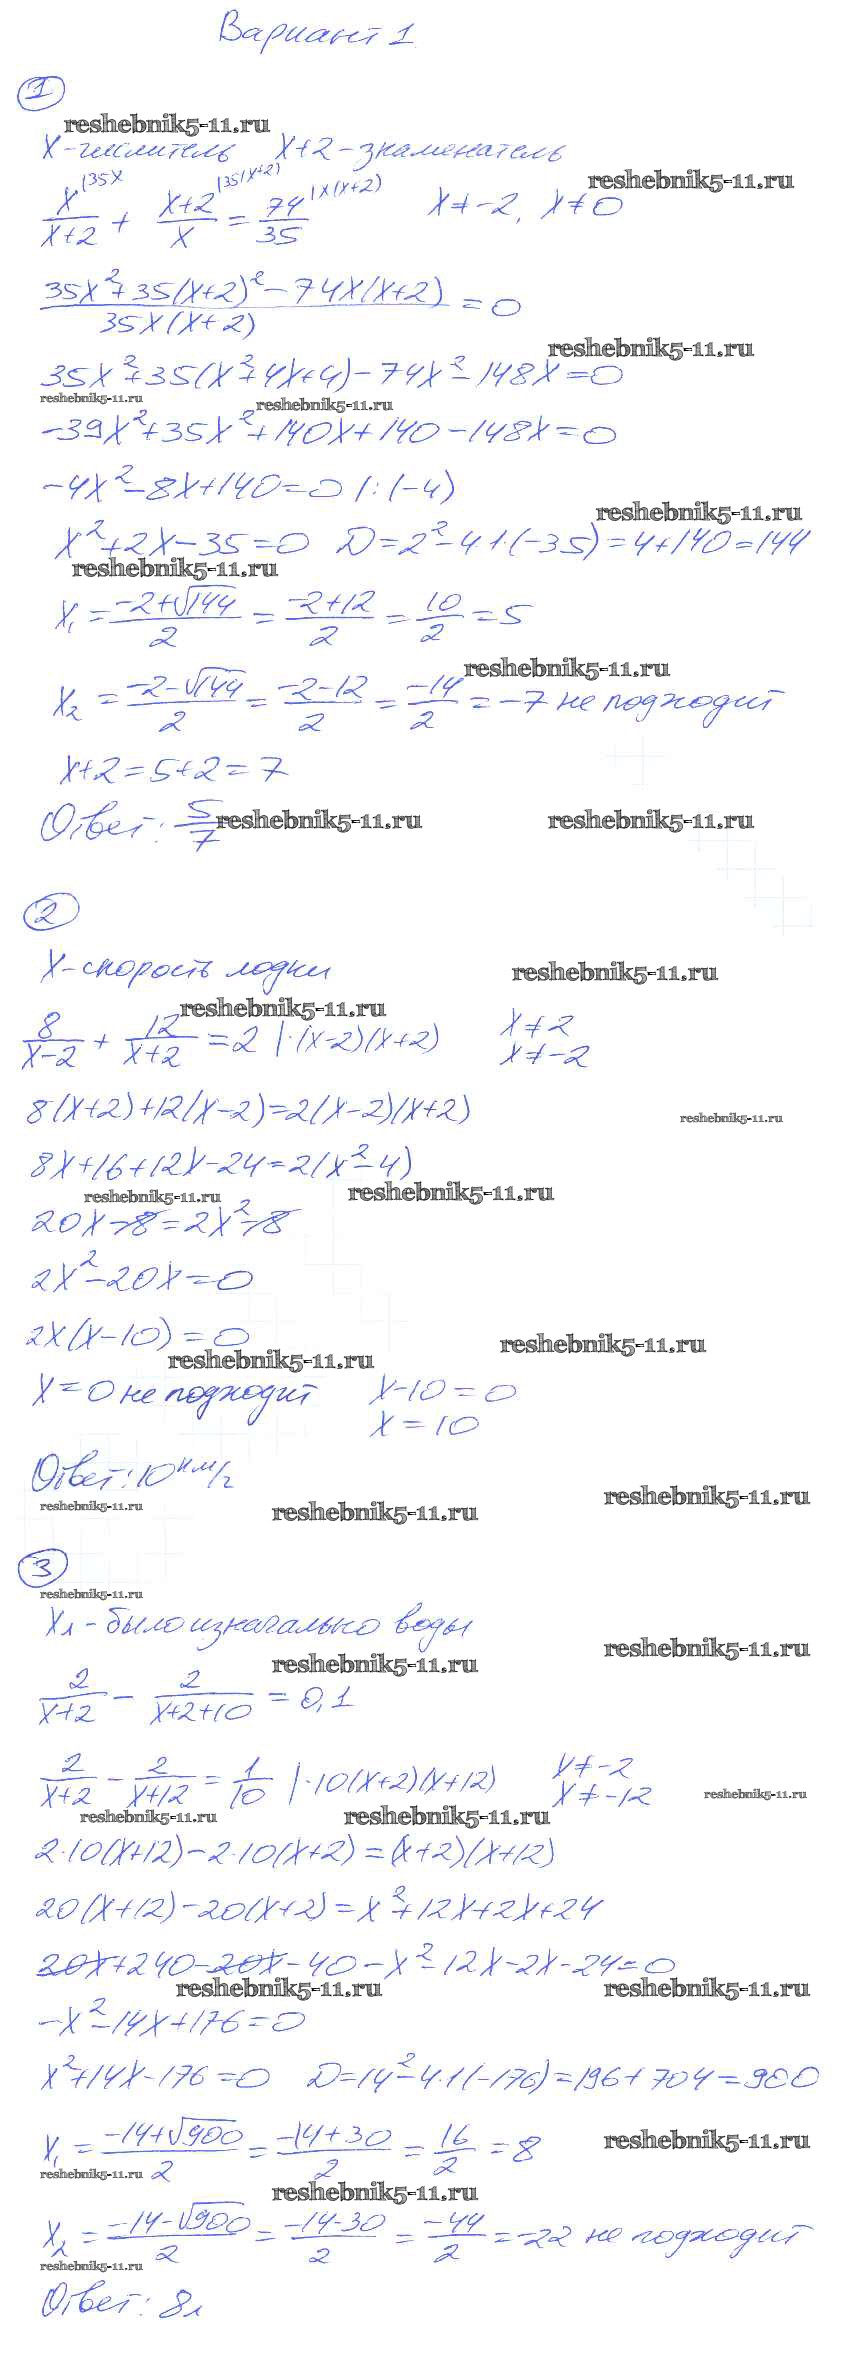 Вариант 1
1
reshebnik5-11.ru
x-числитель x+2-знаменатель
reshebnik5-11.ru
x/(x+2) |35x + (x+2)/x |35(x+2) = 74/35 |x(x+2) x≠-2, x≠0
(35x²+35(x+2)²-74x(x+2))/(35x(x+2))=0
reshebnik5-11.ru
35x²+35(x²+4x+4)-74x²-148x=0
reshebnik5-11.ru reshebnik5-11.ru
-39x²+35x²+140x+140-148x=0
-4x²-8x+140=0 |:(-4)
reshebnik5-11.ru
x²+2x-35=0 D=2²-4·1·(-35)=4+140=144
reshebnik5-11.ru
x₁=(-2+√144)/2=(-2+12)/2=10/2=5
reshebnik5-11.ru
x₂=(-2-√144)/2=(-2-12)/2=-14/2=-7 не подходит
x+2=5+2=7
Ответ: 5/7 reshebnik5-11.ru reshebnik5-11.ru
2
x-скорость лодки reshebnik5-11.ru
reshebnik5-11.ru
8/(x-2)+12/(x+2)=2 |·(x-2)(x+2) x≠2
x≠-2
8(x+2)+12(x-2)=2(x-2)(x+2) reshebnik5-11.ru
8x+16+12x-24=2(x²-4)
reshebnik5-11.ru reshebnik5-11.ru
20x-8=2x²-8
2x²-20x=0
2x(x-10)=0
reshebnik5-11.ru reshebnik5-11.ru
x=0 не подходит x-10=0
x=10
Ответ: 10 км/ч
reshebnik5-11.ru reshebnik5-11.ru reshebnik5-11.ru
3
reshebnik5-11.ru
xл-было изначально воды
reshebnik5-11.ru reshebnik5-11.ru
2/(x+2)-2/(x+2+10)=0,1
2/(x+2)-2/(x+12)=1/10 |·10(x+2)(x+12) x≠-2
x≠-12 reshebnik5-11.ru
reshebnik5-11.ru reshebnik5-11.ru
2·10(x+12)-2·10(x+2)=(x+2)(x+12)
20(x+12)-20(x+2)=x²+12x+2x+24
20x+240-20x-40-x²-12x-2x-24=0
reshebnik5-11.ru reshebnik5-11.ru
-x²-14x+176=0
x²+14x-176=0 D=14²-4·1(-176)=196+704=900
x₁=(-14+√900)/2=(-14+30)/2=16/2=8 reshebnik5-11.ru
reshebnik5-11.ru reshebnik5-11.ru
x₂=(-14-√900)/2=(-14-30)/2=-44/2=-22 не подходит
reshebnik5-11.ru
Ответ: 8л